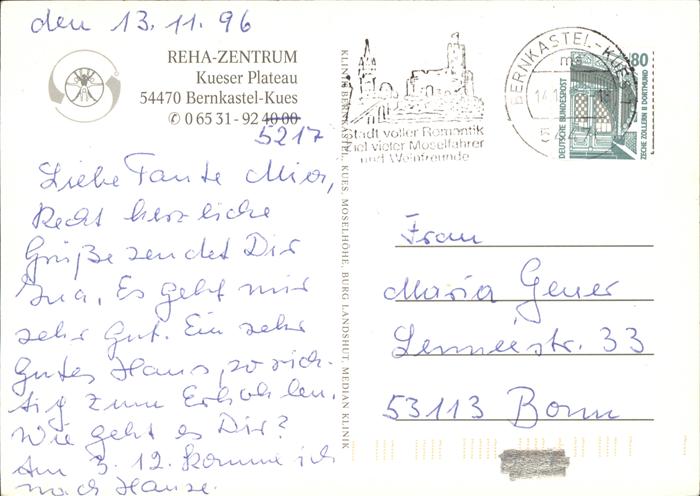 den 13.11.96
REHA-ZENTRUM
Kueser Plateau
54470 Bernkastel-Kues
✆ 0 65 31 - 92 40 00
5217
Liebe Tante Mier,
Recht herzliche
Grüße sendet Dir
Ina. Es geht mir
sehr gut. Ein sehr
gutes Haus, so rich-
tig zum Erhohlen.
Wie geht es Dir?
Am 3.12. komme ich
nach Hause.
KLINIK BERNKASTEL, KUES, MOSELHÖHE, BURG LANDSHUT, MEDIAN KLINIK
Stadt voller Romantik
Ziel vieler Moselfahrer
und Weinfreunde
BERNKASTEL-KUES 1
mc
80
DEUTSCHE BUNDESPOST
ZECHE ZOLLERN II DORTMUND
Frau
Maria Geuer
Lennéestr. 33
53113 Bonn